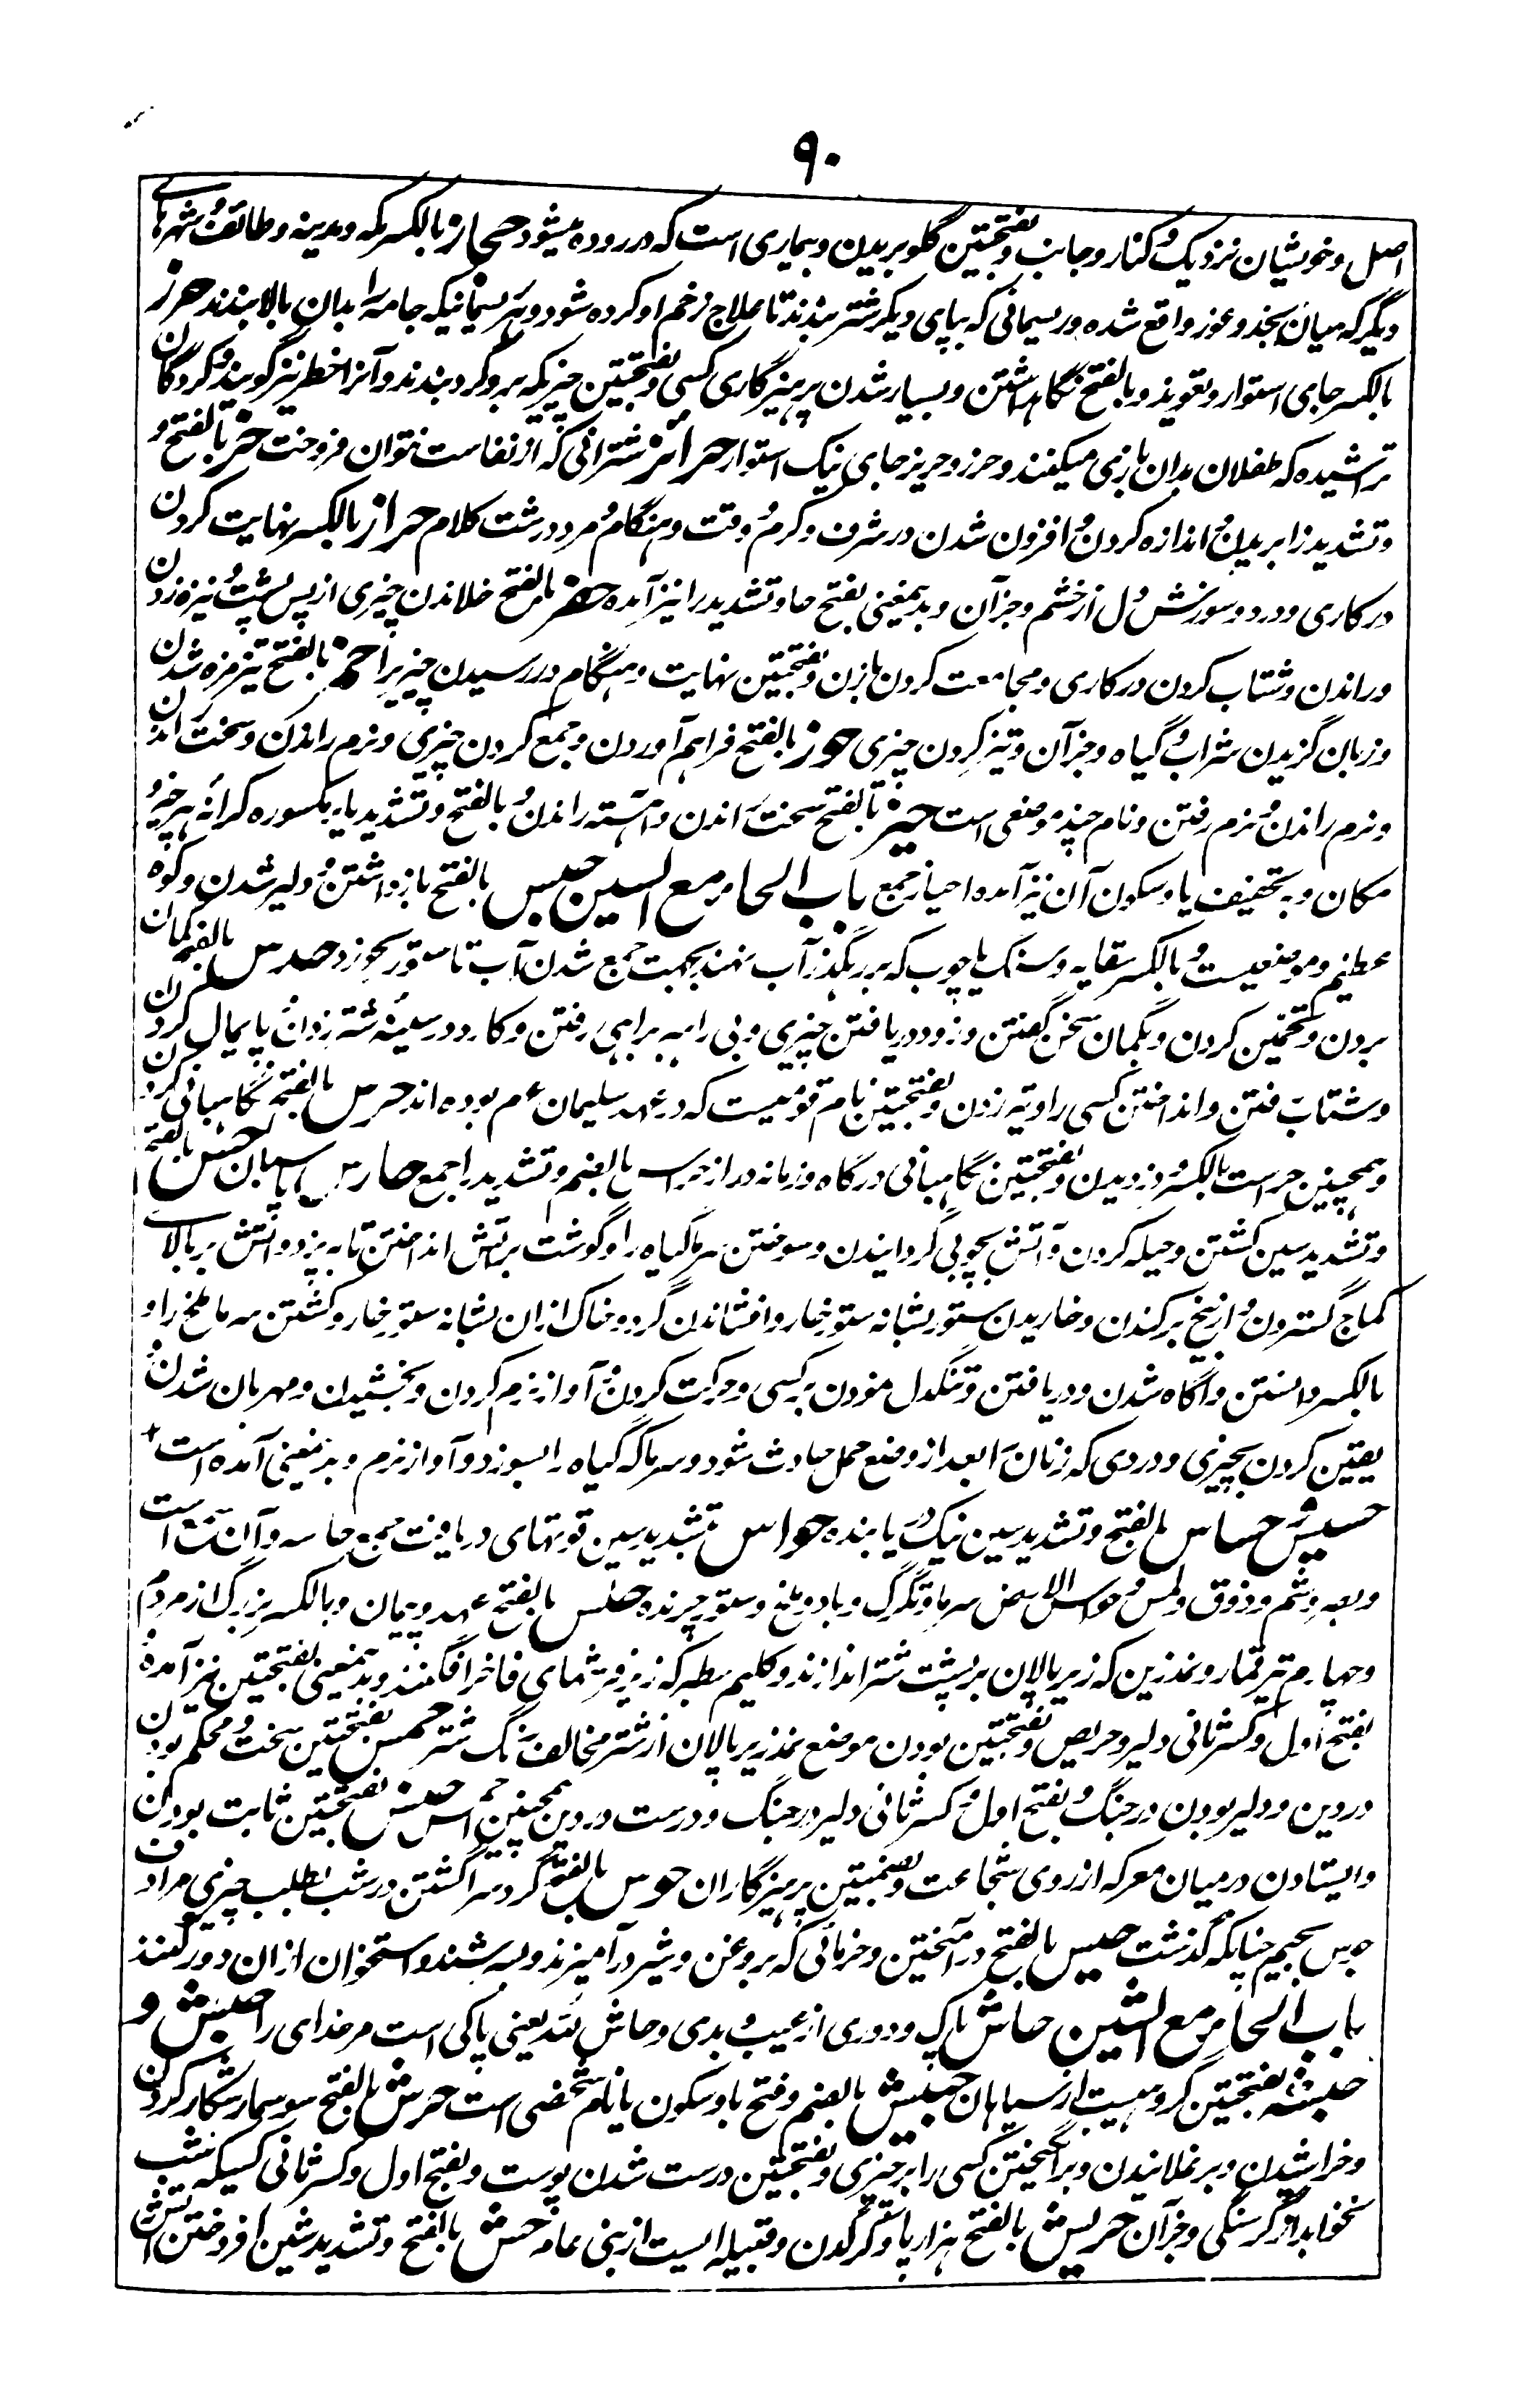 ۹۰
اصل و خویشان نزدیک و کنار و جانب و بفتحتین گلو بریدن و بیماری است که در روده میشود حجاز بالکسر مکه و مدینه و طائف و شهرهای
دیگر که میان نجد و غور واقع شده و ریسمانی که بپای دیگر شتر بندند تا علاج زخم او کرده شود و هر ریسمانیکه جامه را بدان بالا بندند حرز
بالکسر جای استوار و تعویذ و بالفتح نگاهداشتن و بسیار شدن پرهیزگاری کسی و بفتحتین چیزیکه برو گرو بندند و آنرا خطر نیز گویند و گردگان
تراشیده که طفلان بدان بازی میکنند و حرز و حریز جای نیک استوار حرائز شترانی که از نفاست نتوان فروخت حز بالفتح و
و تشدید زا بریدن و اندازه کردن و افزون شدن در شرف و کرم و وقت و هنگام و مرد درشت کلام حزاز بالکسر نهایت کردن
در کاری و درد و سوزش دل از خشم و جز آن و بدینمعنی بفتح حا و تشدید زا نیز آمده حفز بالفتح خلاندن چیزی از پس پشت و نیزه زدن
و راندن و شتاب کردن در کاری و مجامعت کردن بازن و بفتحتین نهایت و هنگام در رسیدن چیزیرا حمز بالفتح تیز مزه شدن
و زبان گزیدن شراب و گیاه و جز آن و تیز کردن چیزی حوز بالفتح فراهم آوردن و جمع کردن چیزی و نرم راندن و سخت راندن
و نرم راندن و نرم رفتن و نام چند موضعی است حیز بالفتح سخت راندن و آهسته راندن و بالفتح و تشدید یای مکسوره کرانه هر چیز و
مکان و به تخفیف یا و سکون آن نیز آمده احیاز جمع باب الحاء مع السین حبس بالفتح بازداشتن و دلیر شدن و کوه
عظیم و موضعیست و بالکسر سقایه و سنگ یا چوب که بر رهگذر آب نهند بجهت جمع شدن آب تا ستور بخورد حدس بالفتح گمان
بردن و تخمین کردن و بگمان سخن گفتن و زود دریافتن چیزی و بی راهبر براهی رفتن و کارد در سینه شتر زدن و پایمال کردن
و شتاب رفتن و انداختن کسی را و تیر زدن و بفتحتین نام قومیست که در عهد سلیمان عم بوده اند حرس بالفتح نگاهبانی کردن
و همچنین حراست بالکسر و دزدیدن و بفتحتین نگاهبانی درگاه و زمانه دراز حراس بالضم و تشدید را جمع حارس پاسبان حس بالفتح
و تشدید سین کشتن و حیله کردن و آتش بچوبی گردانیدن و سوختن سرما گیاه را و گوشت بر آتش انداختن تا به پزد و آتش بر بالای
کماج گستردن و از بیخ برکندن و خاریدن ستور بشانه ستور خار و افشاندن گرد و خاک ازان بشانه ستور خار و کشتن سرما ملخ را و
بالکسر دانستن و آگاه شدن و دریافتن و تنگدل نمودن به کسی و حرکت کردن و آواز نرم کردن و بخشیدن و مهربان شدن و
یقین کردن بچیزی و دردی که زنان را بعد از وضع حمل حادث شود و سرما که گیاه را بسوزد و آواز نرم و بدینمعنی آمده است
حسیس حساس بالفتح و تشدید سین نیک دریابنده حواس بتشدید سین قوتهای دریافت جمع حاسه و آن سمع است
و بصر و شم و ذوق و لمس و حواس الارض سرما و تگرگ و باد و ملخ و ستور چرنده حلس بالفتح عهد و پیمان و بالکسر بزرگ از مردم
و چهارم تیر قمار و نمدزین که زیر پالان بر پشت شتر اندازند و گلیم سطبر که زیر فرشهای فاخر افگنند و بدینمعنی بفتحتین نیز آمده و
بفتح اول و کسر ثانی دلیر و حریص و بفتحتین بودن موضع نمدزیر پالان از شتر مخالف رنگ شتر حمس بفتحتین سخت و محکم بودن
در دین و دلیر بودن در جنگ و بفتح اول و کسر ثانی دلیر در جنگ و درست در دین همچنین احمس حنس بفتحتین ثابت بودن
و ایستادن در میان معرکه از روی شجاعت و بضمتین پرهیزگاران حوس بالفتح گرد سرا گشتن در شب بطلب چیزی مرادف
جوس بجیم چنانکه گذشت حیس بالفتح در آمیختن و خرمائی که بروغن و شیر در آمیزند و بسرشند و استخوان ازان دور کنند
باب الحاء مع الشین حاش پاک و دوری از عیب و بدی و حاش لله یعنی پاکی است مر خدای را حبش و
حبشه بفتحتین گروهیست از سیاهان حبیش بالضم و فتح با و سکون یا نام شخصی است حرش بالفتح سوسمار شکار کردن
و خراشیدن و برغلانیدن و برانگیختن کسی را بر چیزی و بفتحتین درشت شدن پوست و بفتح اول و کسر ثانی کسیکه شب
نخوابد از گرسنگی و جز آن حریش بالفتح هزارپا و کرگدن و قبیله ایست از بنی عامر حش بالفتح و تشدید شین افروختن آتش